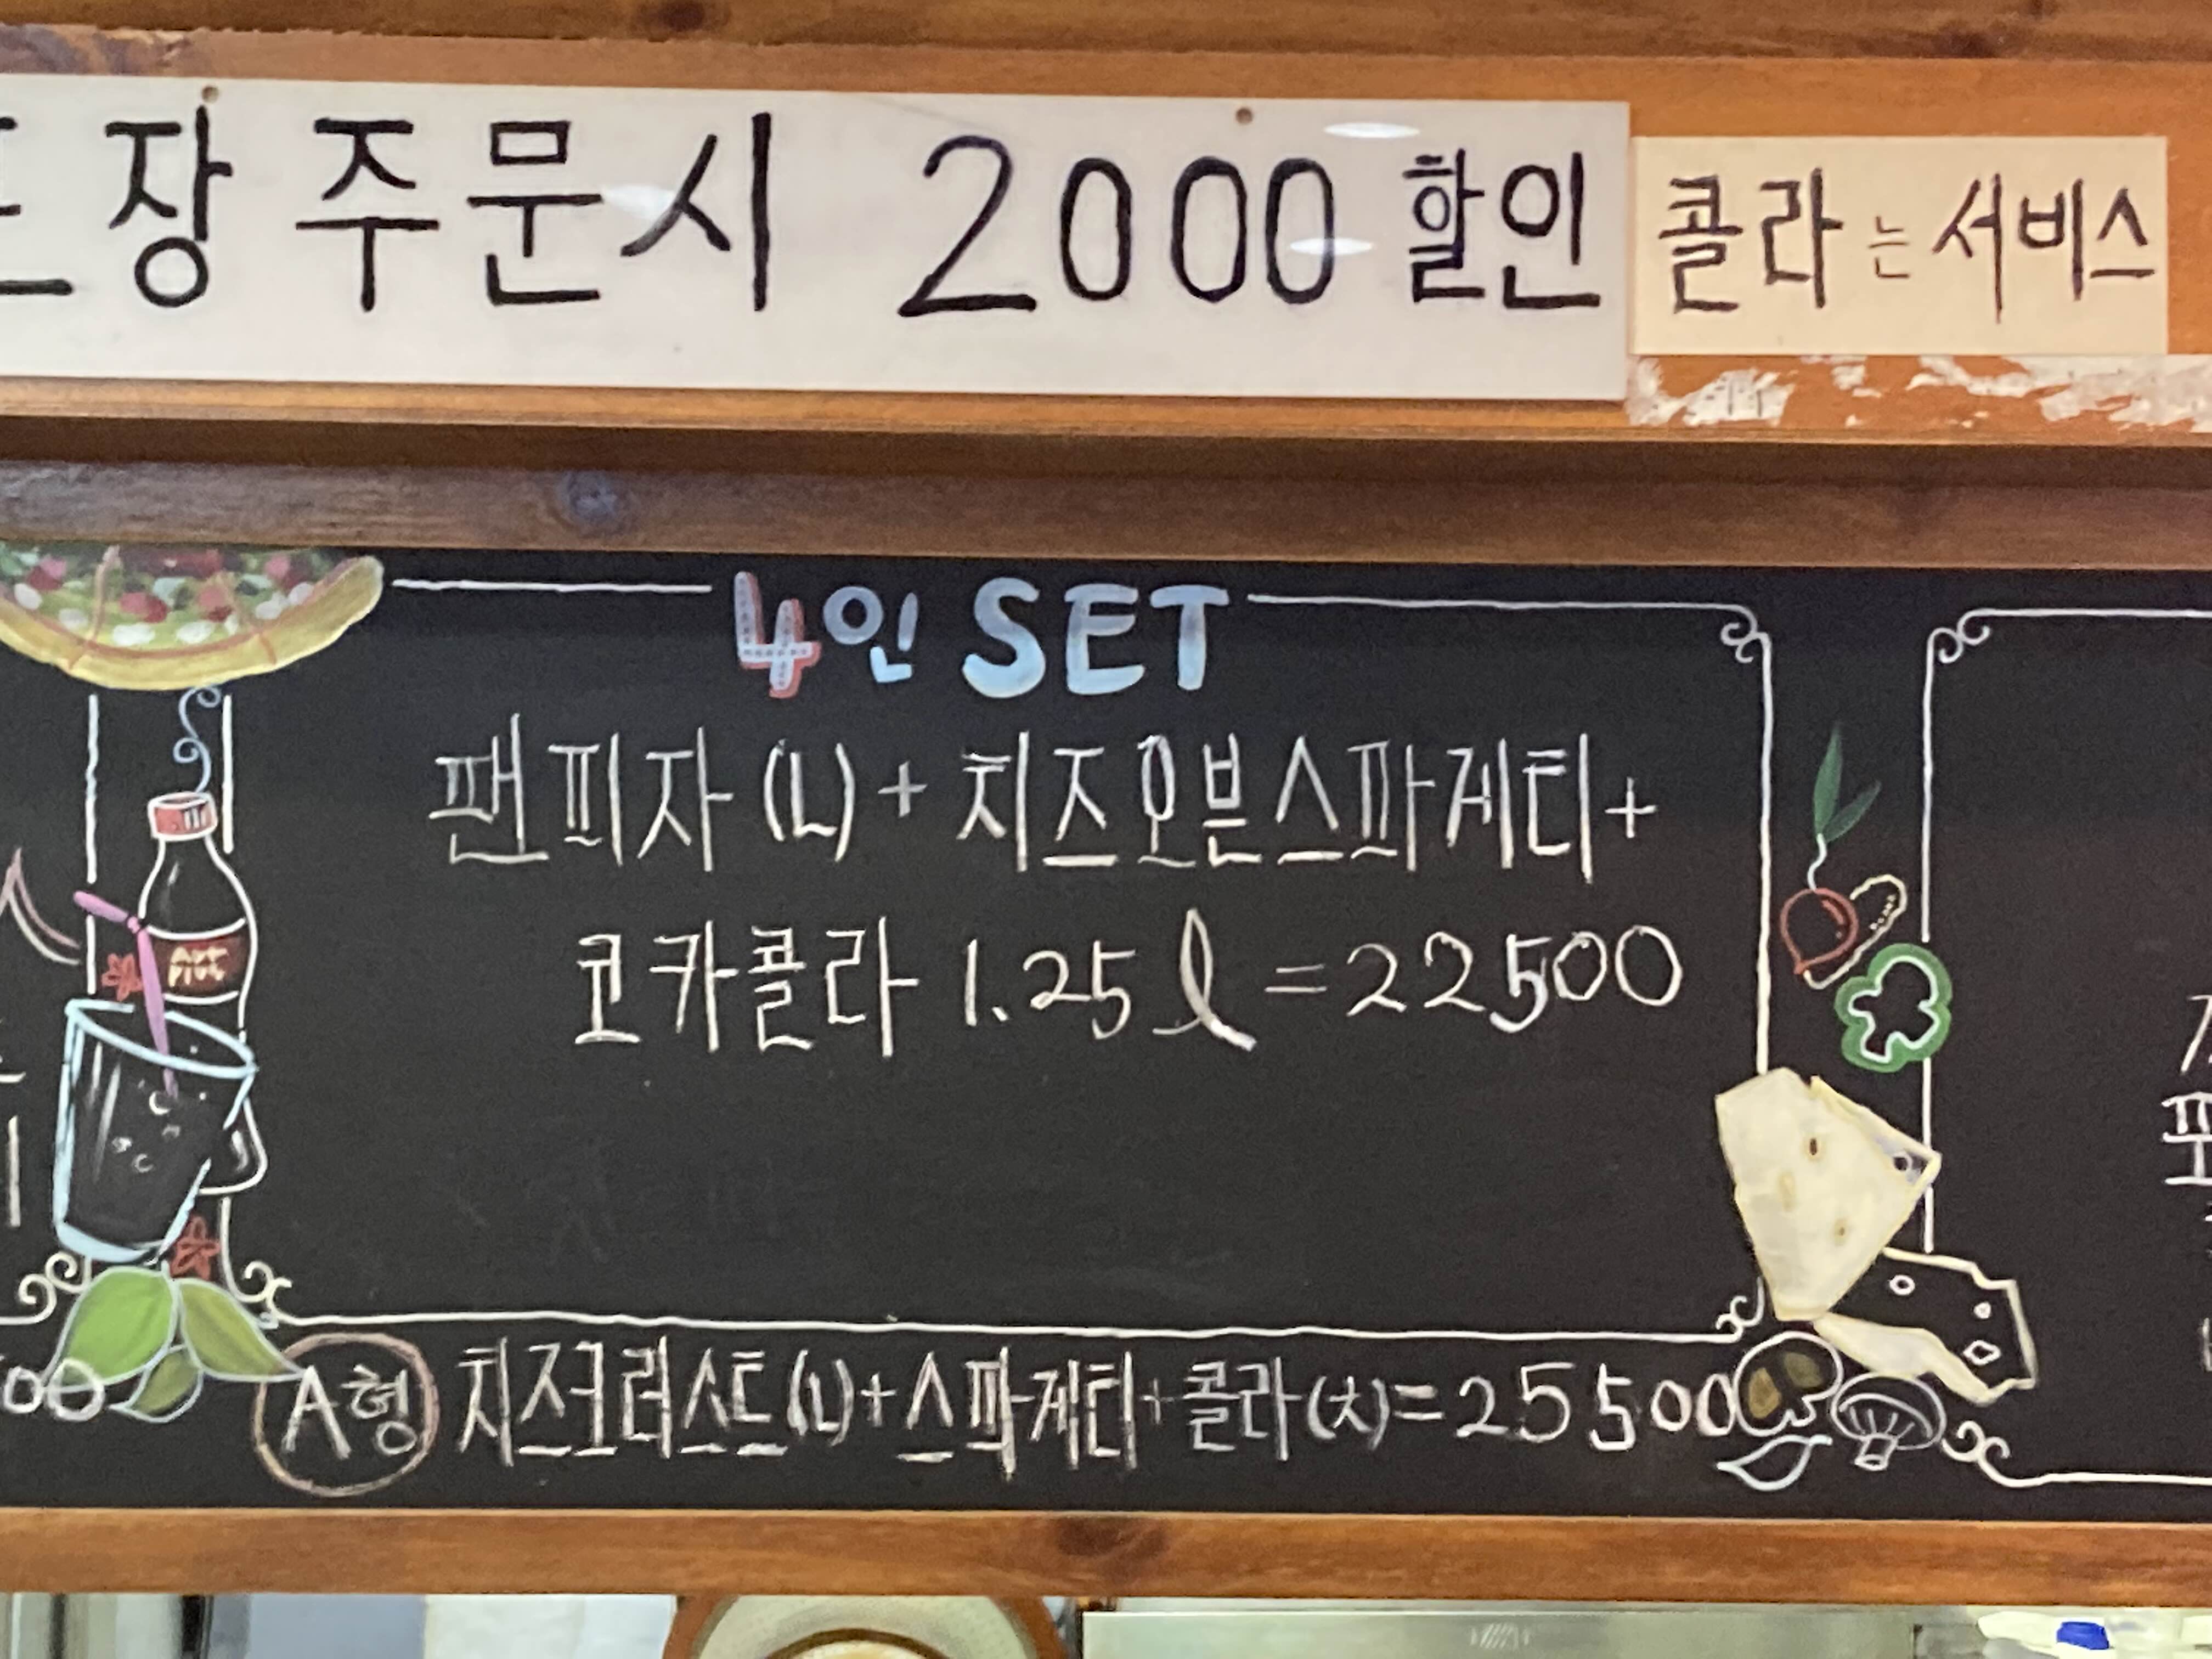 장 주문시 2000 할인
콜라는 서비스
4인 SET
팬피자 (L) + 치즈오븐스파게티 +
코카콜라 1.25 l = 22500
A형 치즈크러스트(L)+스파게티+콜라(大)=25500